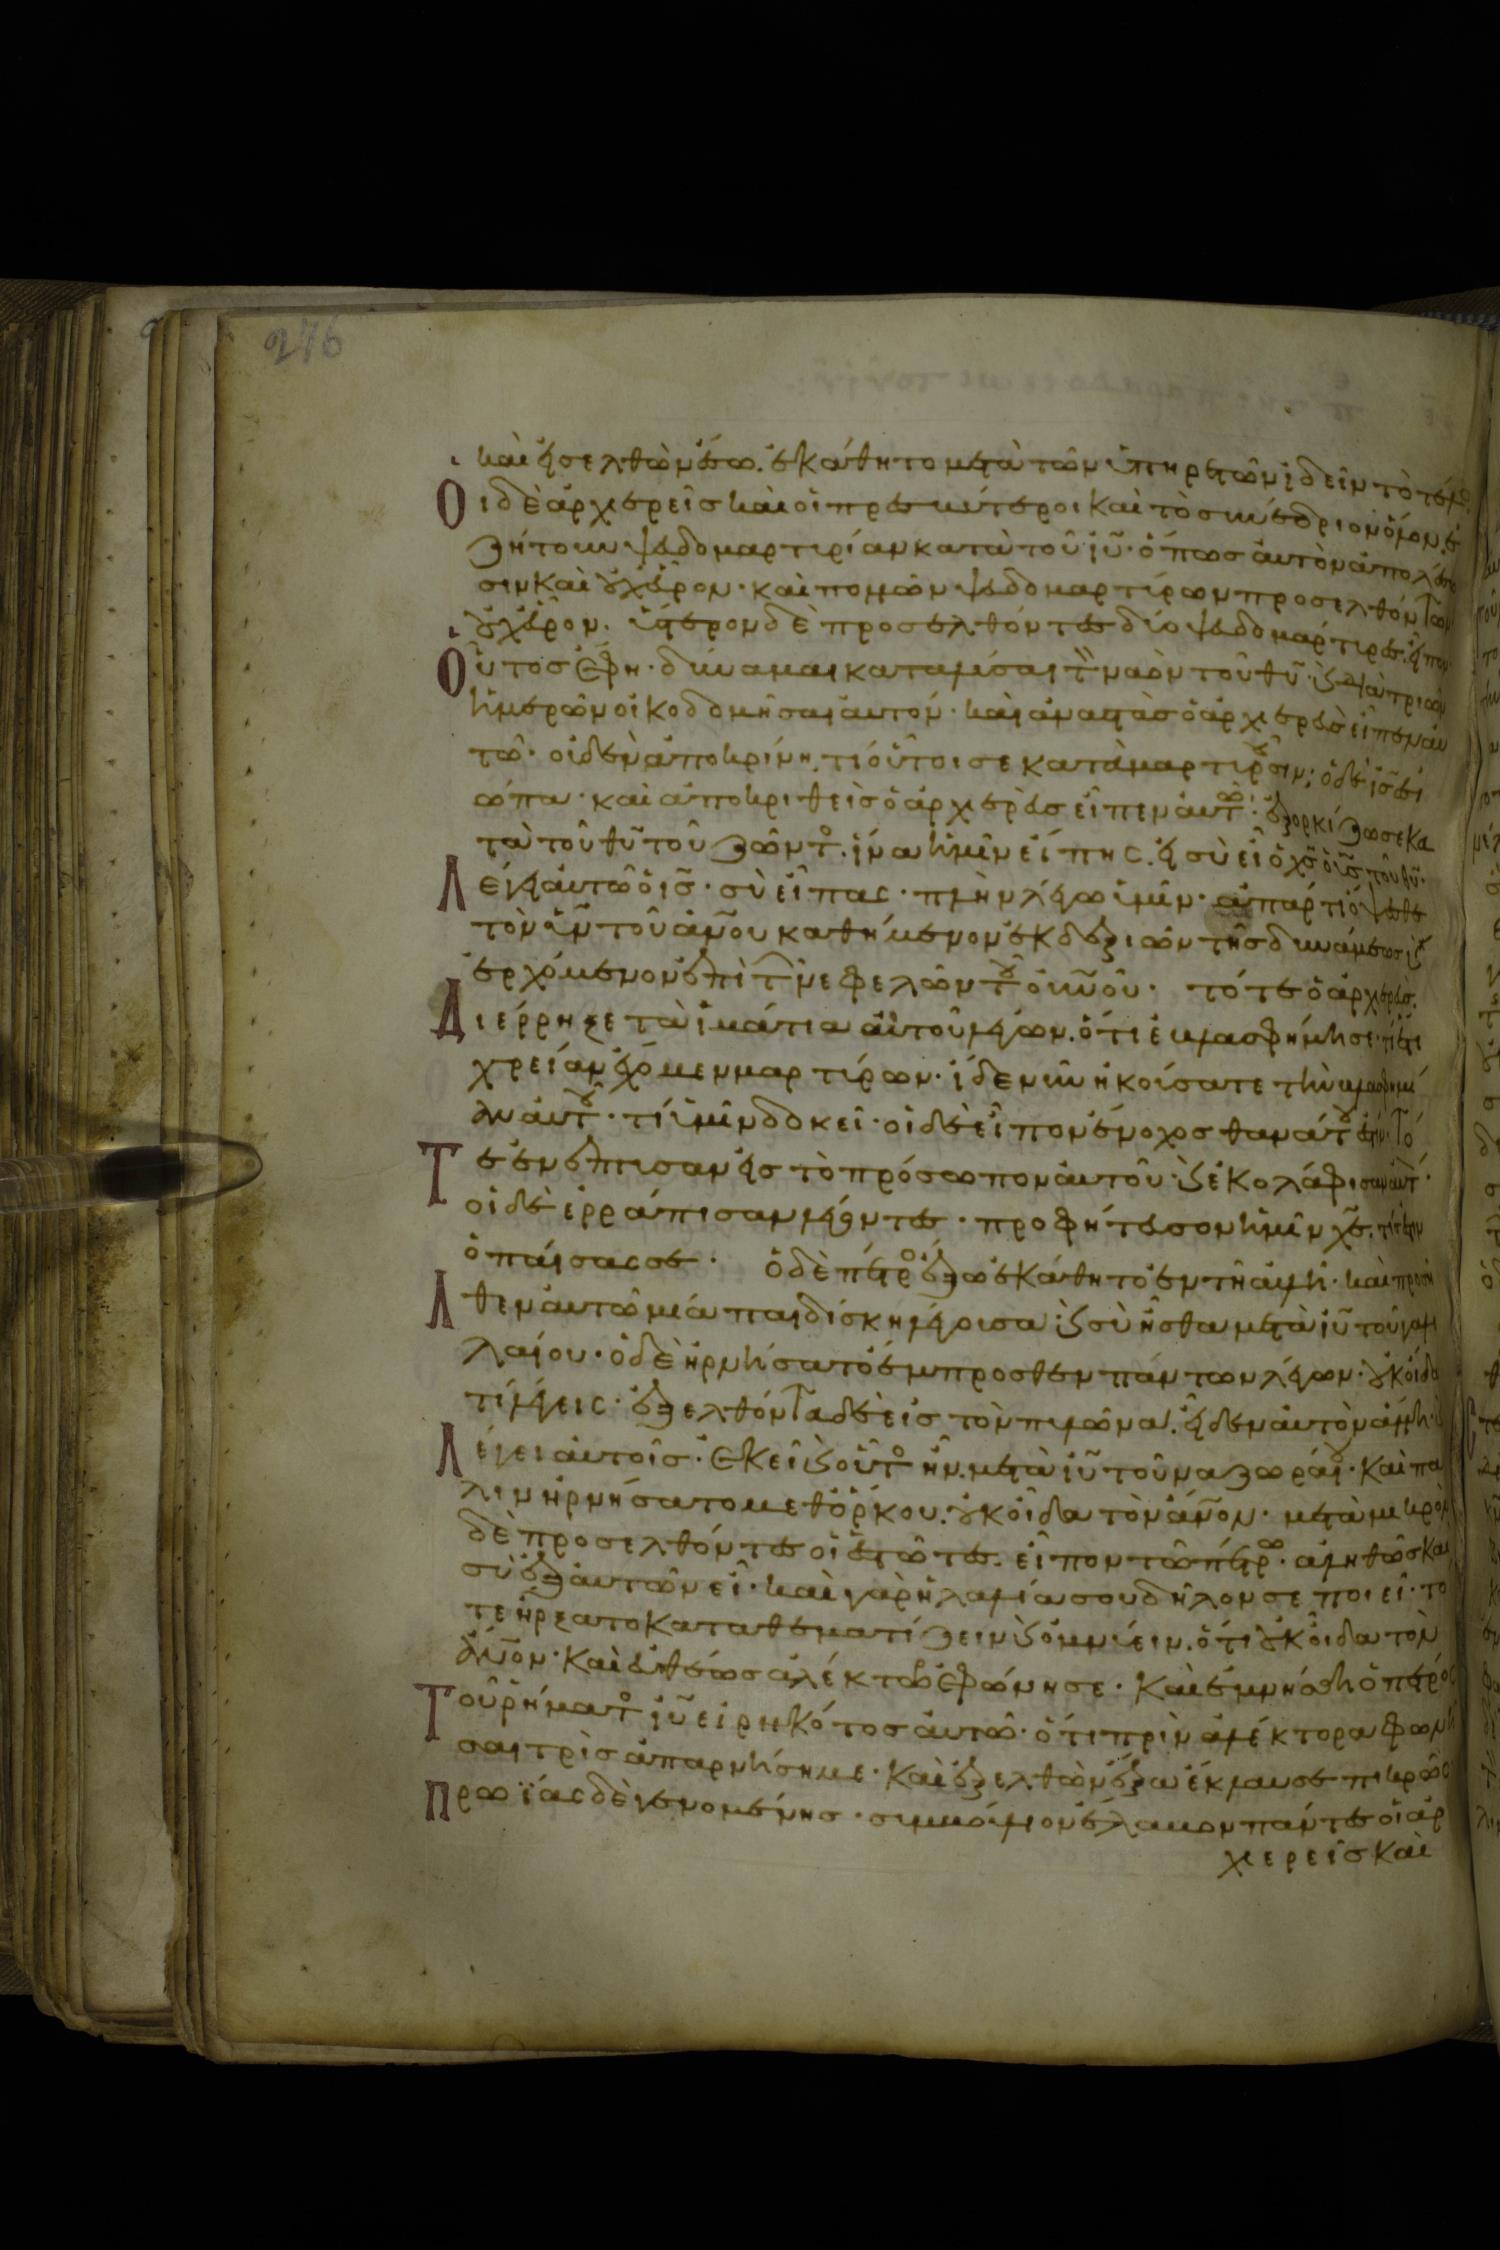 276
καὶ εἰσελθὼν ἔσω. ἐκάθητο μετὰ τῶν ὑπηρετῶν ἰδεῖν τὸ τέλο
Οἱ δὲ ἀρχιερεῖς καὶ οἱ πρεσβύτεροι καὶ τὸ συνέδριον ὅλον ἐ
ζήτουν ψευδομαρτυρίαν κατὰ τοῦ ἰῦ· ὅπως αὐτὸν ἀπολέσω
σιν καὶ οὐχ εὗρον· καὶ πολλῶν ψευδομαρτύρων προσελθόντων
οὐχ εὗρον. ὕστερον δὲ προσελθόντες δύο ψευδομάρτυρες εἶπον
Οὗτος ἔφη· δύναμαι καταλύσαι τὸν ναὸν τοῦ θῦ· καὶ διὰ τριῶν
ἡμερῶν οἰκοδομῆσαι αὐτόν· καὶ ἀναστὰς ὁ ἀρχιερεὺς εἶπεν αὐ
τῶ· οὐδὲν ἀποκρίνη. τί οὗτοι σε καταμαρτυροῦσιν; ὁ δὲ ἰς ἐσι
ώπα· καὶ ἀποκριθεὶς ὁ ἀρχιερεὺς εἶπεν αὐτῶ· ἐξορκίζω σε κα
τὰ τοῦ θῦ τοῦ ζῶντος. ἵνα ἡμῖν εἴπης. εἰ σὺ εἶ ὁ χς ὁ υἱς τοῦ θῦ·
Λέγει αὐτῶ ὁ ις· σὺ εἶπας· πλὴν λέγω ὑμῖν· ἀπάρτι ὄψεσθε
τὸν υἱν τοῦ ἀνου καθήμενον ἐκ δεξιῶν τῆς δυνάμεως καὶ
ἐρχόμενον ἐπὶ τῶν νεφελῶν τοῦ οὐνοῦ· τότε ὁ ἀρχιερεὺς.
Διέρρηξε τὰ ἱμάτια αὐτοῦ λέγων. ὅτι ἐβλασφήμησε· τί ἔτι
χρείαν ἔχομεν μαρτύρων· ἴδε νῦν ἠκούσατε τὴν βλασφημί
αν αὐτοῦ· τί ὑμῖν δοκεῖ· οἱ δὲ εἶπον ἔνοχος θανάτου ἐστίν· Τό
Τε ἐνέπτυσαν εἰς τὸ πρόσωπον αὐτοῦ· καὶ ἐκολάφισαν αὐτ·
οἱ δὲ ἐρράπισαν λέγοντες· προφήτευσον ἡμῖν χε. τίς ἐστιν
ὁ παίσας σε· ὁ δὲ πέτρος ἔξω ἐκάθητο ἐν τῆ αὐλῆ· καὶ προσῆ
Λθεν αὐτῶ μία παιδίσκη λέγουσα· καὶ σὺ ἦσθα μετὰ ἰῦ τοῦ γαλι
λαίου· ὁ δὲ ἠρνήσατο ἔμπροσθεν πάντων λέγων· οὐκ οἶδα
τί λέγεις· ἐξελθόντα δὲ εἰς τὸν πυλῶνα. εἶδεν αὐτὸν ἄλλη· καὶ
Λέγει αὐτοῖς· ἐκεῖ καὶ οὗτος ἦν. μετὰ ἰῦ τοῦ ναζωραίου· καὶ πά
λιν ἠρνήσατο μεθ ὅρκου. οὐκ οἶδα τὸν ἀνον· μετὰ μικρὸν
δὲ προσελθόντες οἱ ἑστῶτες. εἶπον τῶ πέτρω· ἀληθῶς καὶ
σὺ ἐξ αὐτῶν εἶ· καὶ γὰρ ἡ λαλία σου δῆλον σε ποιεῖ· τό
τε ἤρξατο καταθεματίζειν καὶ ὀμνύειν. ὅτι οὐκ οἶδα τὸν
ἄνον· καὶ εὐθέως ἀλέκτωρ ἐφώνησε· καὶ ἐμνήσθη ὁ πέτρος
Τοῦ ῥήματος ἰῦ εἰρηκότος αὐτῶ· ὅτι πρὶν ἀλέκτορα φωνῆ
σαι τρὶς ἀπαρνήση με· καὶ ἐξελθὼν ἔξω ἔκλαυσε πικρῶς
Πρωΐας δὲ γενομένης· συμβούλιον ἔλαβον πάντες οἱ ἀρ
χιερεῖς καὶ